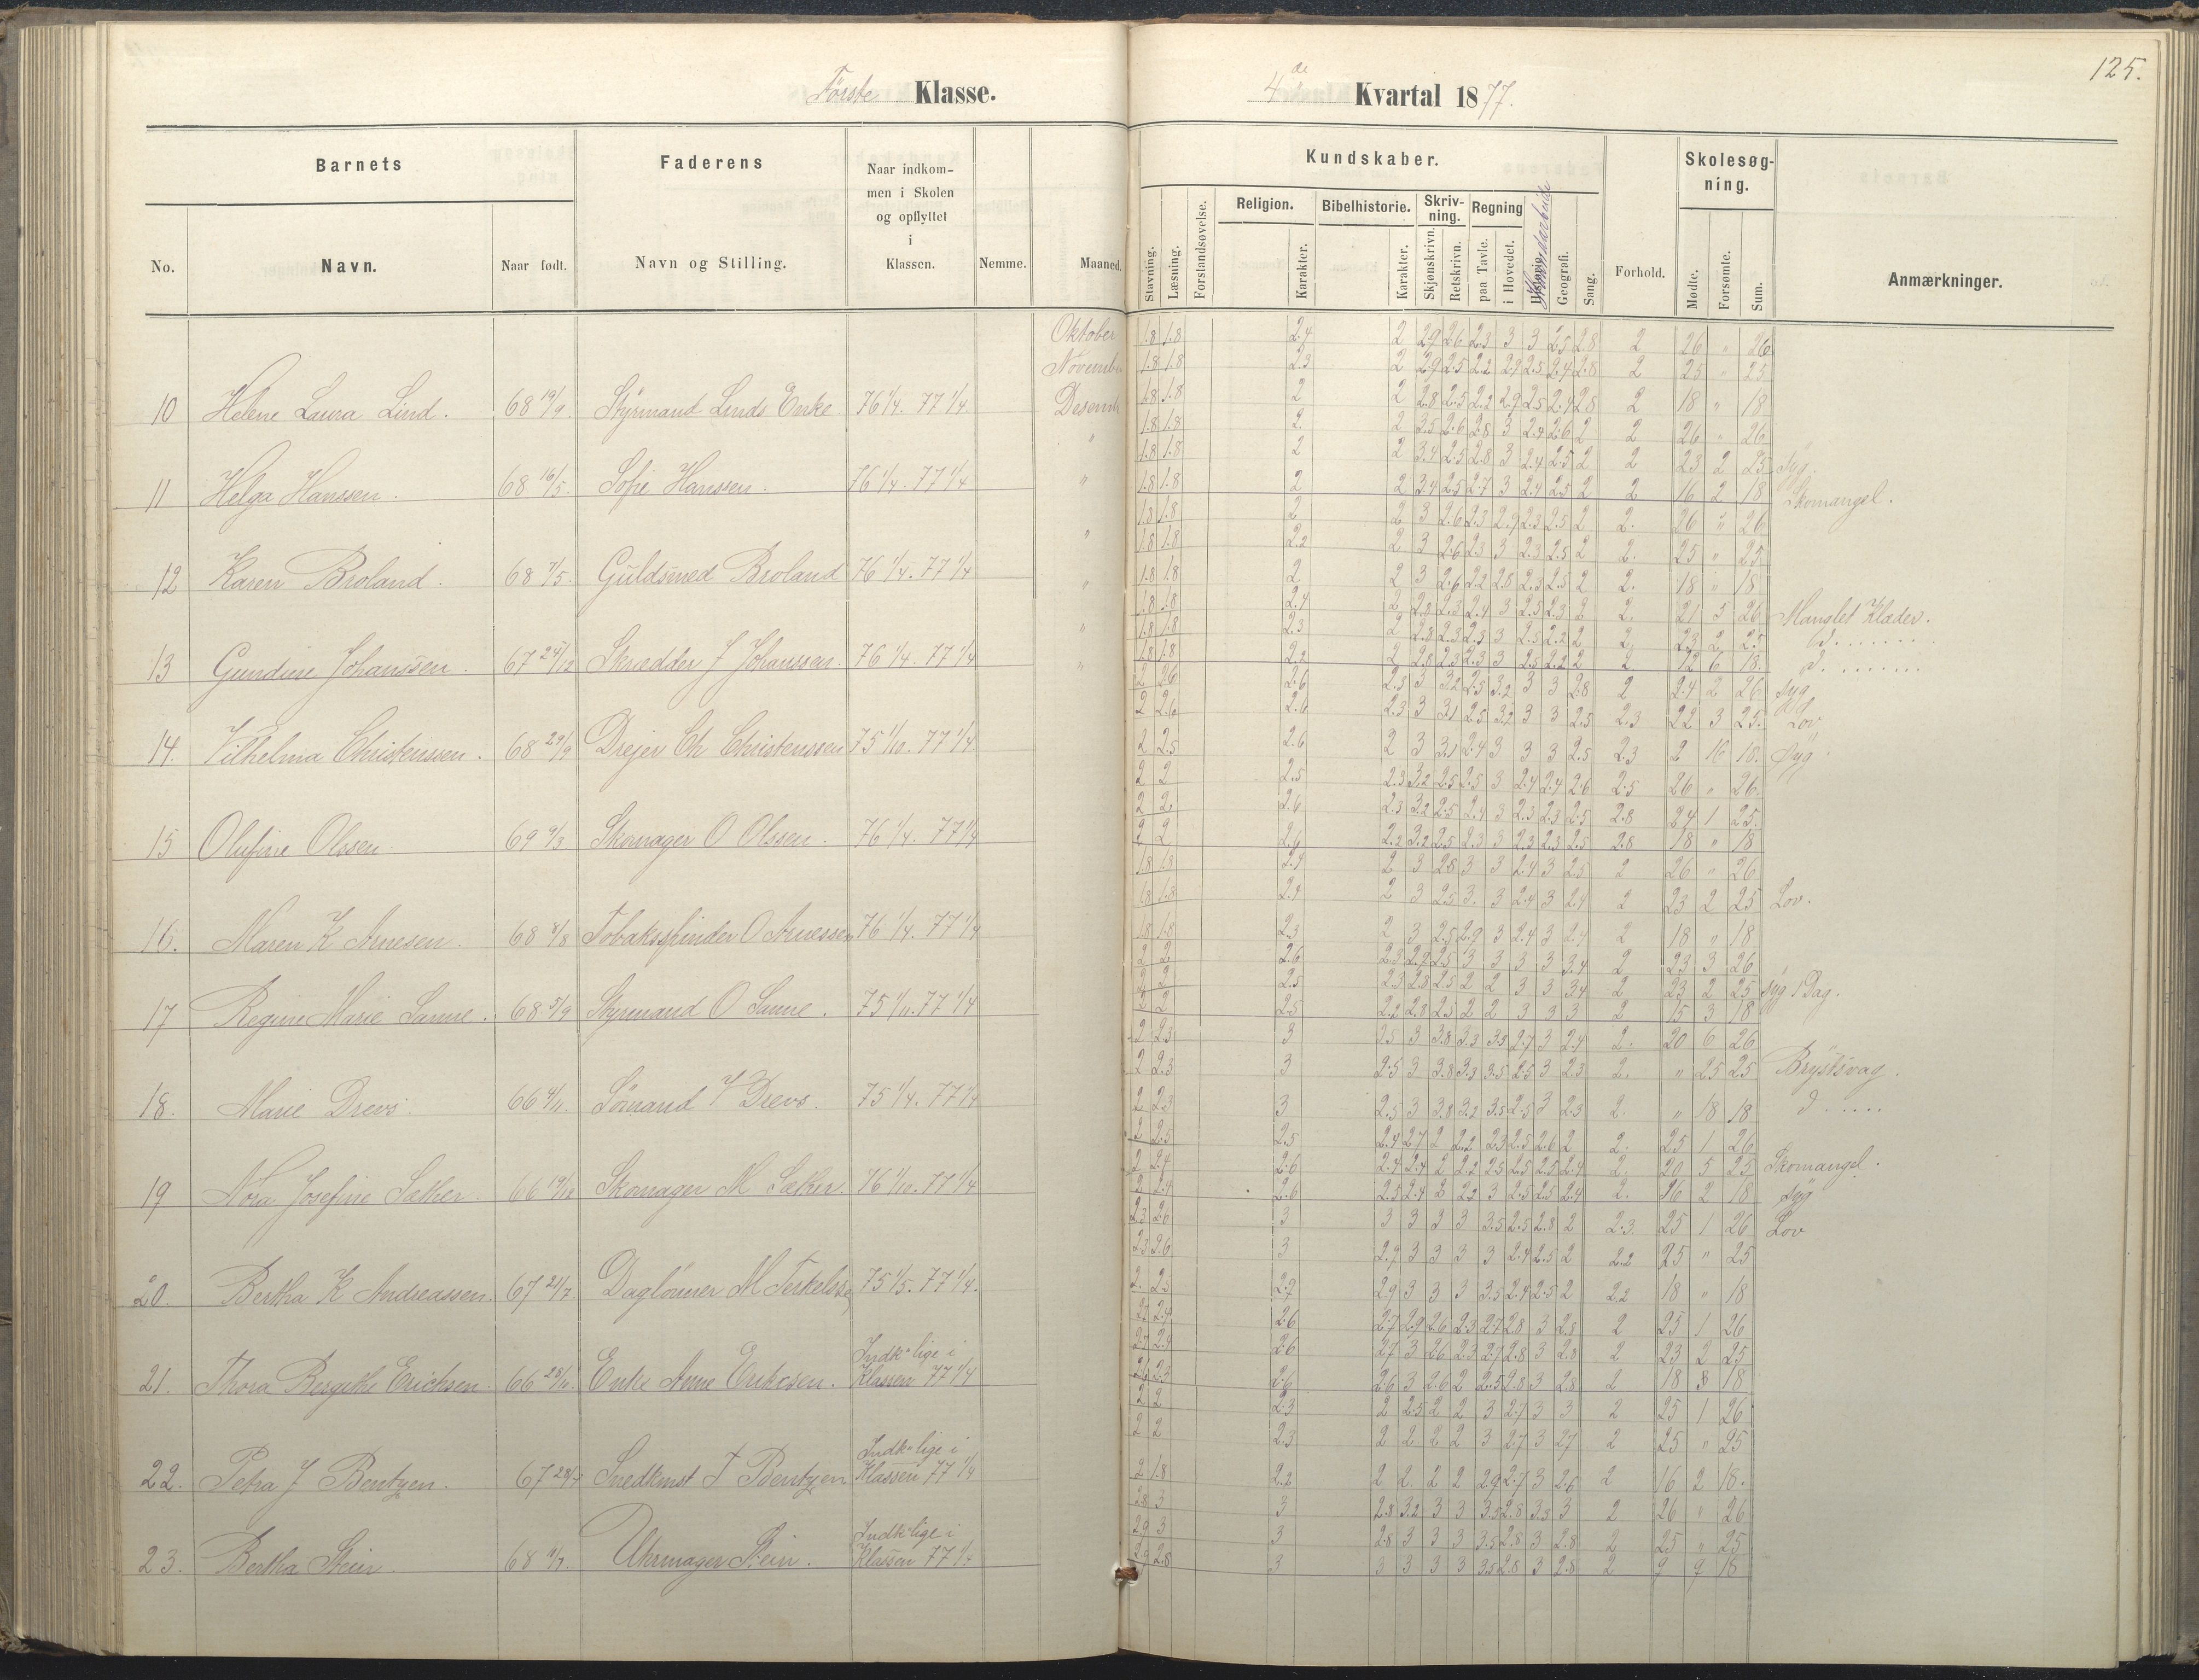 125.
Første Klasse.
4de Kvartal 1877.
Barnets
Faderens
Naar indkom-
men i Skolen
og opflyttet
i
Klassen.
No.
Navn.
Naar født.
Navn og Stilling.
Nemme.
Maaned.
Kundskaber.
Skolesøg-
ning.
Religion.
Bibelhistorie.
Skriv-
ning.
Regning
Stavning.
Læsning.
Forstandsøvelse.
Karakter.
Karakter.
Skjønskrivn.
Retskrivn.
paa Tavle.
i Hovedet.
Haandarbeide
Geografi.
Sang.
Forhold.
Møde.
Forsømte.
Sum.
Anmærkninger.
Oktober 1.8 1.8 2.4 2 2.9 2.6 2.3 3 3 2.5 2.8 2 26 " 26
November 1.8 1.8 2.3 2 2.9 2.5 2.2 2.9 2.5 2.4 2.8 2 25 " 25
10 Helene Laura Lind. 68 19/9. Styrmand Linds Enke. 76 1/4. 77 1/4. Desemb. 1.8 1.8 2 2 2.8 2.5 2.2 2.9 2.5 2.4 2.8 2 18 " 18
" 1.8 1.8 2. 2 3.5 2.6 2.8 3 2.4 2.6 2 2 26 " 26
1.8 1.8 2 2 3.4 2.5 2.8 3 2.4 2.5 2 2 23 2 25 Syg.
11 Helga Hanssen. 68 16/5. Sofie Hanssen. 76 1/4. 77 1/4 " 1.8 1.8 2 2 3.4 2.5 2.7 3 2.4 2.5 2 2 16 2 18 Skomangel.
1.8 1.8 2 2 3 2.6 2.3 2.9 2.3 2.5 2 2. 26 " 26
" 1.8 1.8 2.2 2 3 2.6 2.3 3 2.3 2.5 2 2. 25 " 25
12 Karen Broland. 68 7/5. Guldsmed Broland 76 1/4. 77 1/4 " 1.8 1.8 2 2 3 2.6 2.2 2.8 2.3 2.5 2 2. 18 " 18
1.8 1.8 2.4 2 2.8 2.3 2.4 3 2.5 2.3 2 2. 21 5 26 Manglet Klæder.
" 1.8 1.8 2.3 2 2.8 2.3 2.3 3 2.5 2.2 2 2. 23 2 25 d.......
13 Gundine Johanssen. 67 24/12 Skrædder J Johanssen. 76 1/4. 77 1/4 " 1.8 1.8 2.2 2 2.8 2.3 2.3 3 2.5 2.2 2 2 12 6 18. d........
2 2.6 2.6 2.3 3 3.2 2.5 3.2 3 3 2.8 2 24 2 26 Syg
2 2.6 2.6 2.3 3 3.1 2.5 3.2 3 3 2.5 2.3 22 3 25. Lov
14. Vilhelmina Christenssen. 68 29/9 Drejer Ch Christenssen 75 1/10. 77 1/4 2 2.5 2.6 2 3 3.1 2.4 3 3 3 2.5 2.3 2 16 18. Syg.
2 2 2.5 2.3 3.2 2.5 2.5 3 2.4 2.4 2.6 2.5 26 " 26.
2 2. 2.6 2.3 3.2 2.5 2.4 3 2.3 2.3 2.5 2.8 24 1 25.
15 Olufine Olssen. 69 9/3 Skomager O Olssen. 76 1/4. 77 1/4 2 2 2.6 2.2 3.2 2.5 2.3 3 2.3 2.3 2.5 2.8 18 " 18
1.8 1.8 2.4 2 3 2.8 3 3 2.4 3 2.5 2 26 " 26
1.8 1.8 2.4 2 3 2.5 3. 3 2.4 3 2.4 2 23 2 25 Lov.
16. Maren K Arnesen. 68 8/8 Tobaksspinder O Arnessen 76 1/4. 77 1/4 1.8 1.8 2.3 2 3 2.5 2.9 3 2.4 3 2.4 2 18 " 18
2 2 2.6 2.3 2.9 2.5 3 3 3 3 3.4 2 23 3 26
2 2 2.5 2.3 2.8 2.5 2 2 3 3 3.4 2 23 2 25 Syg 1 Dag.
17 Regine Marie Sanne. 68 5/9 Styrmand O Sanne. 75 1/11. 77 1/4 2 2 2.5 2.2 2.8 2.5 2 2 3 3 3 2 15 3 18
2 2.3 3 2.5 3 3.8 3.3 3.5 2.7 3 2.4 2. 20 6 26
2 2.3 3 2.5 3 3.8 3.3 3.5 2.5 3 2.3 2. " 25 25 Brystsvag.
18. Marie Drevs. 66 4/11. Sømand J Drevs. 75 1/4. 77 1/4 2 2.3 3 2.5 3 3.8 3.2 3.5 2.5 3 2.3 2. " 18 18 d.....
2 2.5 2.5 2.4 2.7 2 2.2 2.3 2.5 2.6 2 2. 25 1 26
2 2.4 2.6 2.4 2.4 2 2.2 2.5 2.5 2.5 2.4 2. 20 5 25 Skomangel.
19 Nora Josefine Sæther. 66 19/12 Skomager M Sæther. 76 1/10. 77 1/4 2 2.4 2.6 2.5 2.4 2 2.2 3 2.5 2.5 2.4 2. 16 2 18 Syg
2.3 2.6 3 3 3 3 3 3.5 2.5 2.8 2 2.3. 25 1 26 Lov
2.3 2.6 3 2.9 3 3 3 3 2.4 2.5 2 2.2 25 " 25
20. Bertha K Andreassen. 67 21/7 Dagløner M Terkelss 75 1/5. 77 1/4. 2. 2.5 2.7 2.9 3 3 3 3.5 2.4 2.5 2 2.2 18 " 18
2.7 2.4 2.6 2.7 2.9 2.6 2.3 2.7 2.8 3 2.8 2 25 1 26
Indk. lige i 2.7 2.4 2.6 2.7 3 2.6 2.3 2.7 2.8 3 2.8 2 23 2 25
21. Thora Bergithe Ericksen. 66 28/11. Enke Anne Eriksen. Klassen 77 1/4 2.6 2.3 2.6 2.6 3 2.6 2 2.5 2.8 3 2.8 2 18 18
2 2 2.3 2 2.5 2 2 3 2.7 3 3 2 25 1 26
Indk. lige i 2 2 2.3 2 2 2 2 3 2.7 3 2.7 2 25 " 25
22. Petra J Bentzen. 67 28/7 Snedkmst T Bentzen Klassen 77 1/4 2 1.8 2.2 2 2 2 2 2.9 2.7 3 2.6 2 16 2 18.
2.8 3 3 2.8 3.2 3 3 3.5 2.8 3.5 3 2 26 " 26
Indk. lige i 2.9 3 3 2.8 3 3 3 3.5 2.8 3 2.8 2 25 " 25
23. Bertha Stein. 68 4/7. Uhrmager Stein. Klassen 77 1/4 2.9 2.8 3 3 3 3 3 3.5 2.8 3 2.8 2 9 9 18